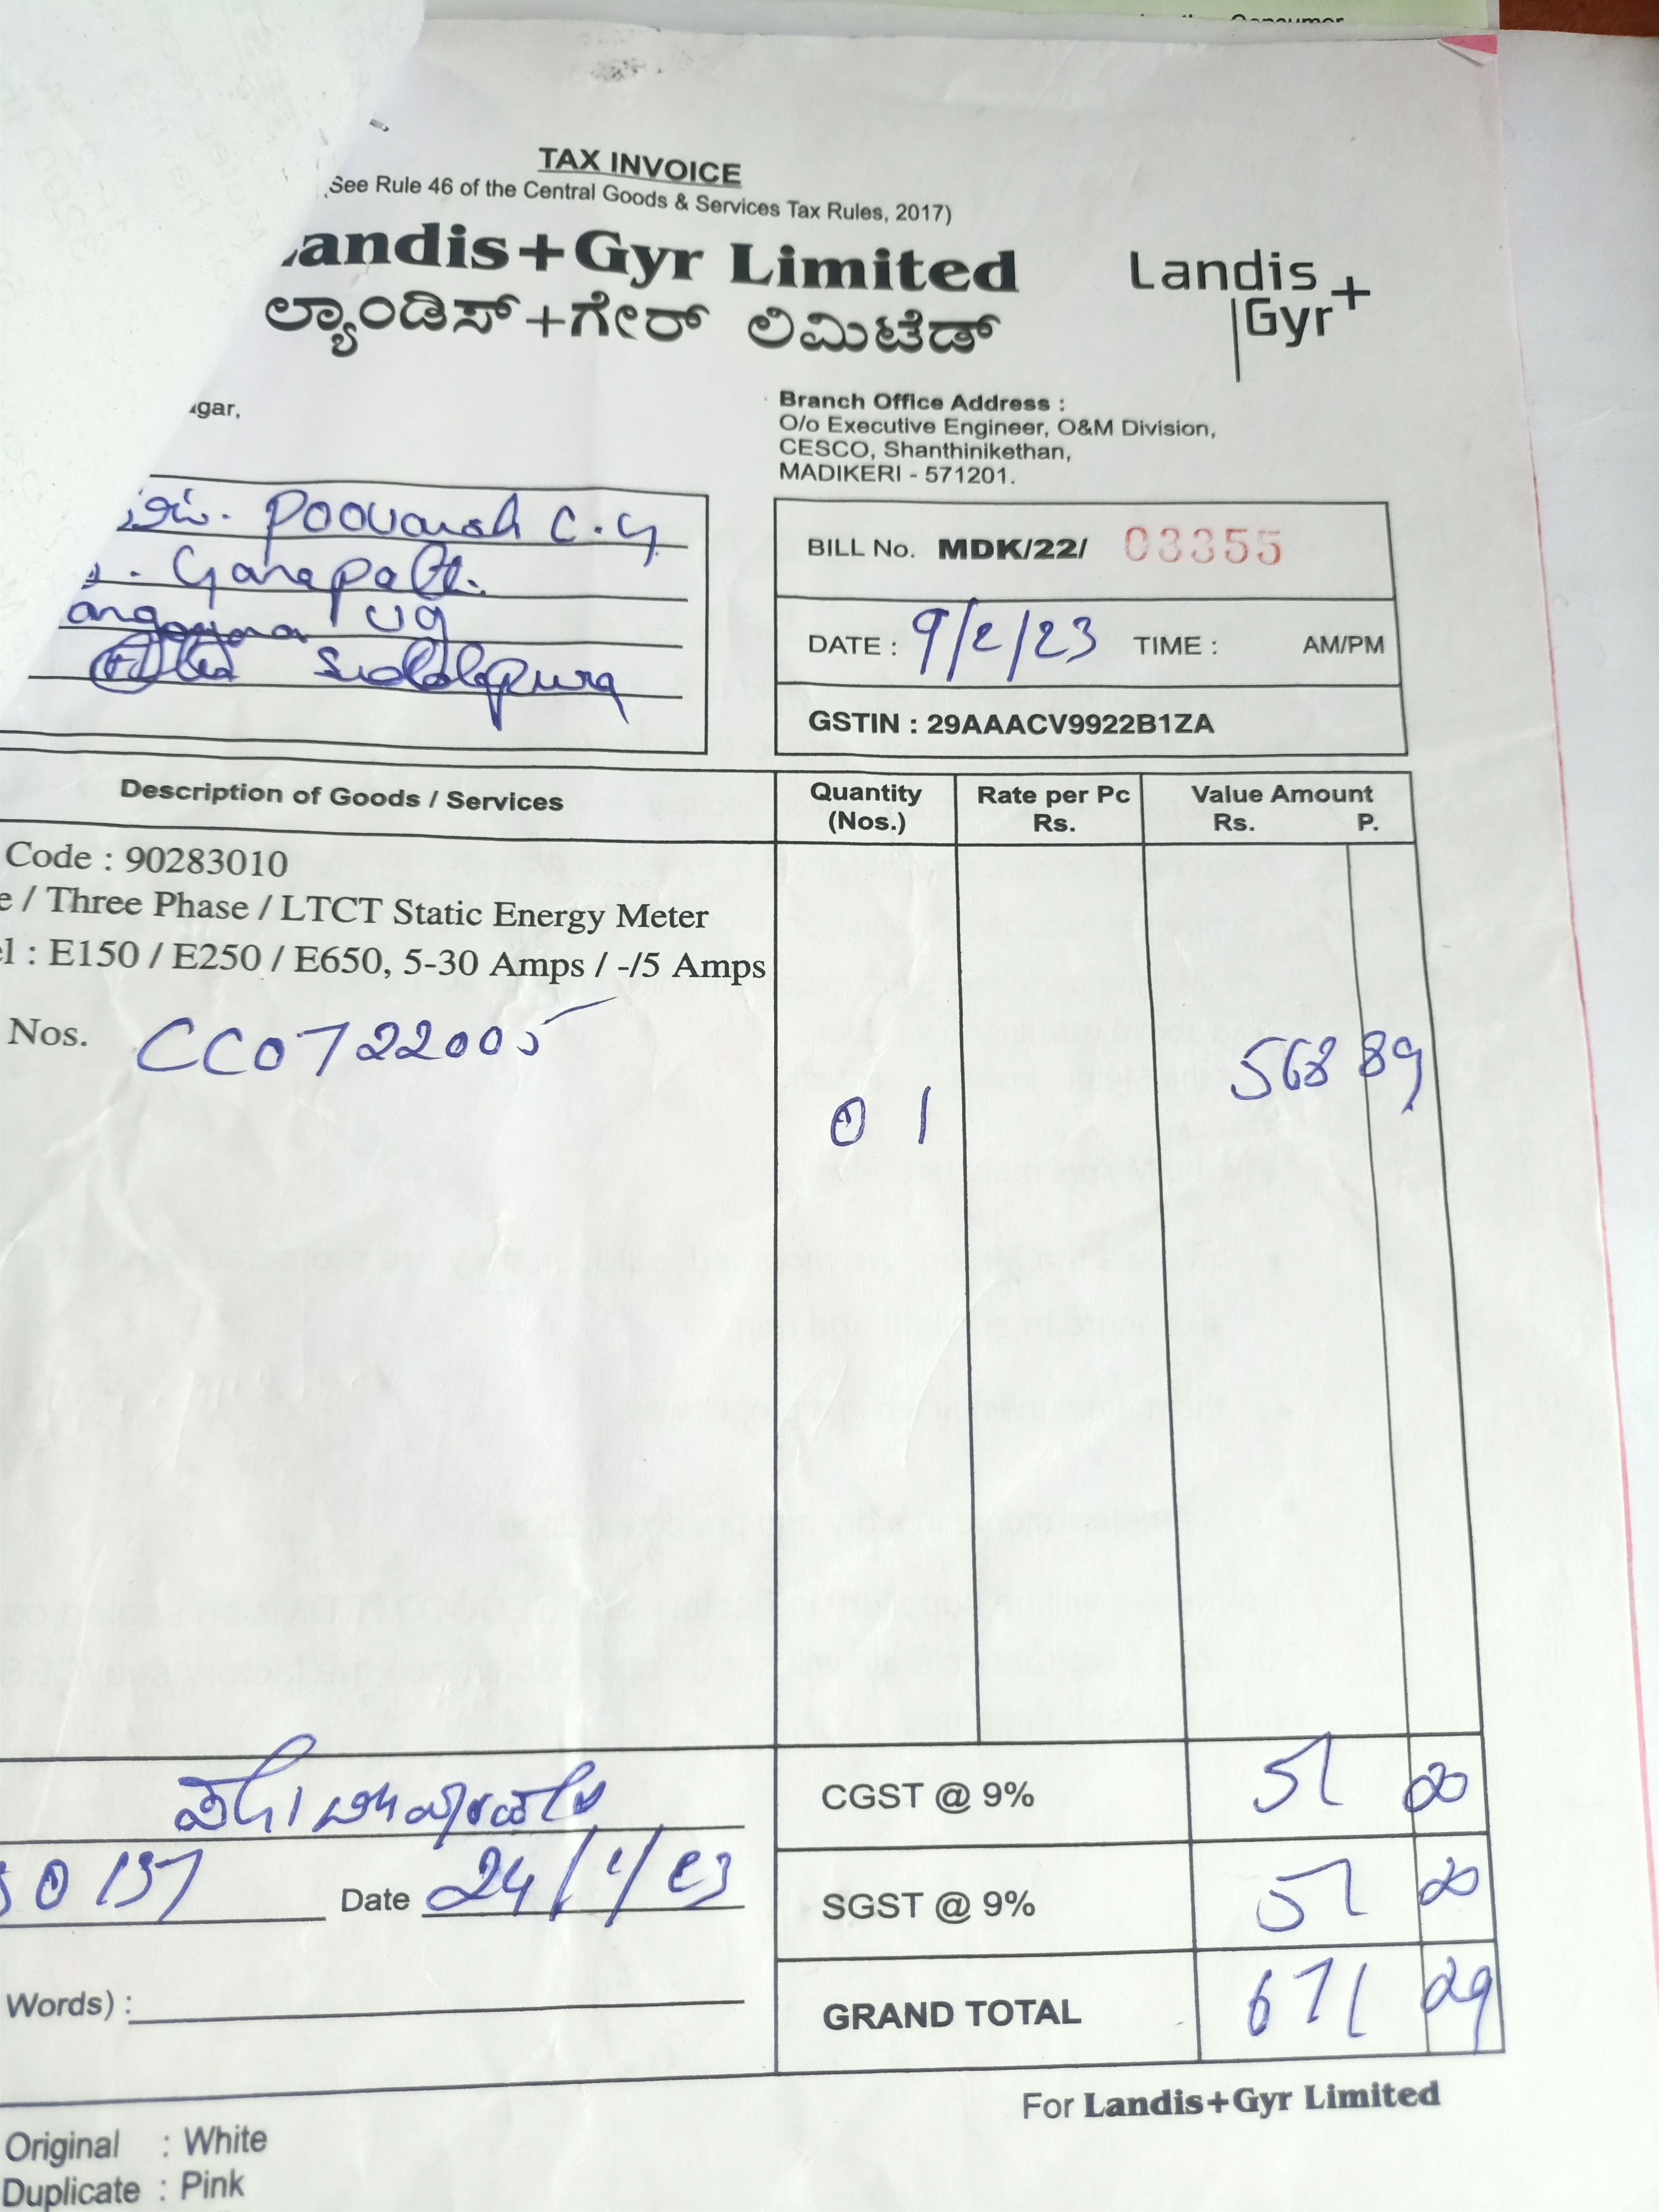 TAX INVOICE
See Rule 46 of the Central Goods & Services Tax Rules, 2017)
Landis+Gyr Limited
ಲ್ಯಾಂಡಿಸ್+ಗೇರ್ ಲಿಮಿಟೆಡ್
Landis+
Gyr
gar,
Branch Office Address :
O/o Executive Engineer, O&M Division,
CESCO, Shanthinikethan,
MADIKERI - 571201.
Poovaish C.G
Ganapathi
BILL No. MDK/22/ 03355
DATE : 9/2/23 TIME : AM/PM
GSTIN : 29AAACV9922B1ZA
Description of Goods / Services Quantity (Nos.) Rate per Pc Rs. Value Amount Rs. P.
Code : 90283010
e / Three Phase / LTCT Static Energy Meter
el : E150 / E250 / E650, 5-30 Amps / -/5 Amps
Nos. CC0722005
01 568 89
CGST @ 9% 51 00
0137 Date 24/1/23
SGST @ 9% 51 00
Words) :
GRAND TOTAL 671 29
For Landis+Gyr Limited
Original : White
Duplicate : Pink